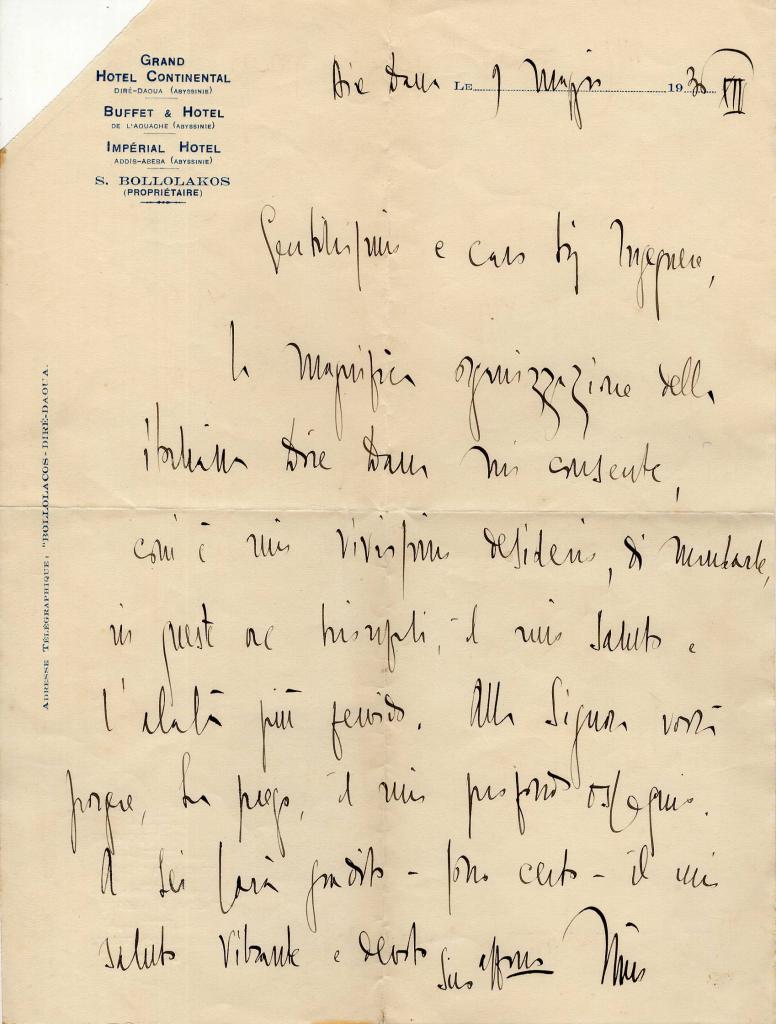 GRAND
HOTEL CONTINENTAL
DIRÉ-DAOUA (ABYSSINIE)
BUFFET & HOTEL
DE L'AOUACHE (ABYSSINIE)
IMPÉRIAL HOTEL
ADDIS-ABEBA (ABYSSINIE)
S. BOLLOLAKOS
(PROPRIÉTAIRE)
ADRESSE TÉLÉGRAPHIQUE: "BOLLOLACOS-DIRÉ-DAOUA.
Dire Daua LE 9 Maggio 1936 XIII
Gentilissimo e caro Sig Ingegnere,
la magnifica organizzazione della
italiana Dire Daua mi consente,
com'è mio vivissimo desiderio, di mandarle,
in queste ore trionfali, il mio saluto e
l'alalà più fervido. Alla Signora vorrà
porgere, La prego, il mio profondo ossequio.
A Lei sarà gradito - sono certo - il mio
saluto vibrante e devoto
Suo affmo